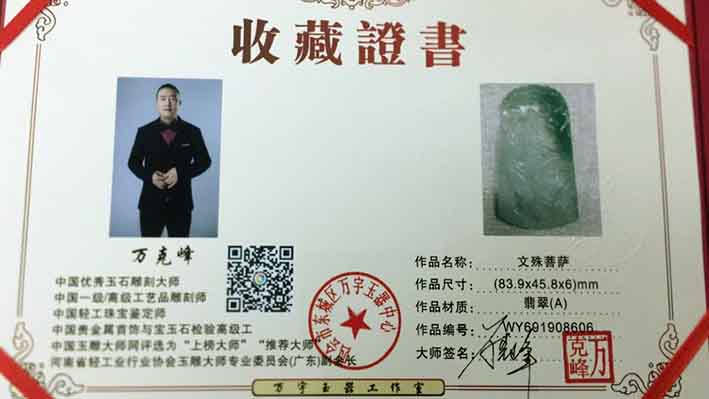 收藏證書
万克峰
中国优秀玉石雕刻大师
中国一级/高级工艺品雕刻师
中国轻工珠宝鉴定师
中国贵金属首饰与宝玉石检验高级工
中国玉雕大师网评选为“上榜大师”“推荐大师”
河南省轻工业行业协会玉雕大师专业委员会(广东)副会长
作品名称: 文殊菩萨
作品尺寸: (83.9x45.8x6)mm
作品材质: 翡翠(A)
作品编号: WY691908606
大师签名:
万克峰
万宇玉器工作室